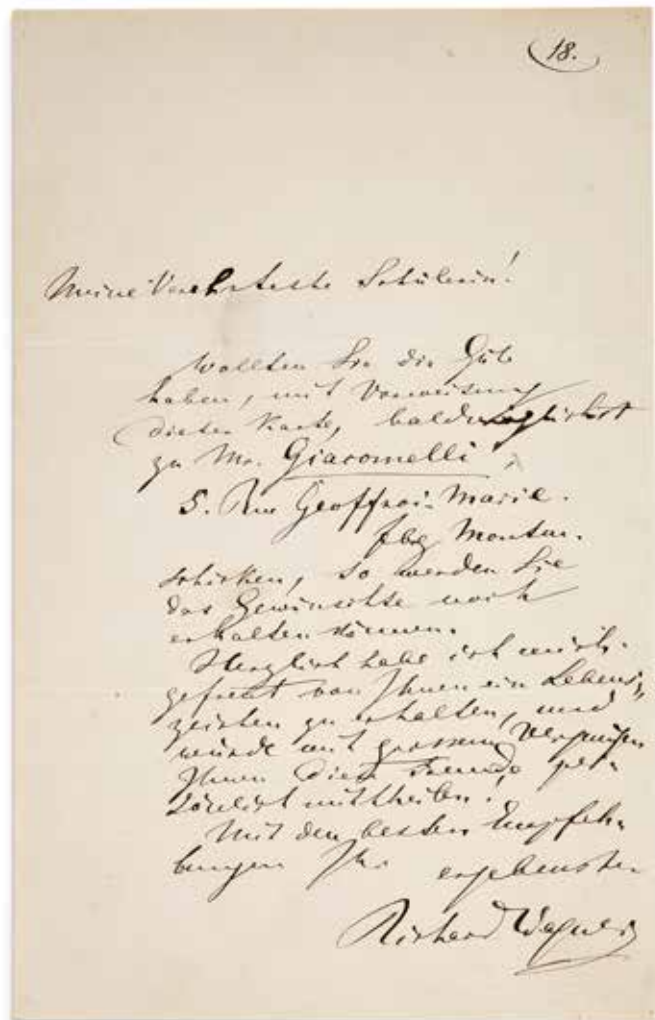 18.
Meine Verehrteste Schülerin!
Wollten Sie die Güte
haben, mit Vorweisung
dieser Karte, baldmöglichst
zu Mr. Giacomelli,
5. Rue Geoffroi-Marie.
fbg Montm.
schicken, so werden Sie
das Gewünschte noch
erhalten können.
Herzlich habe ich mich
gefreut von Ihnen ein Lebens-
zeichen zu erhalten, und
würde mit grossem Vergnügen
Ihnen diese Freude per-
sönlich mittheilen!
Mit den besten Empfeh-
lungen Ihr ergebenster
Richard Wagner